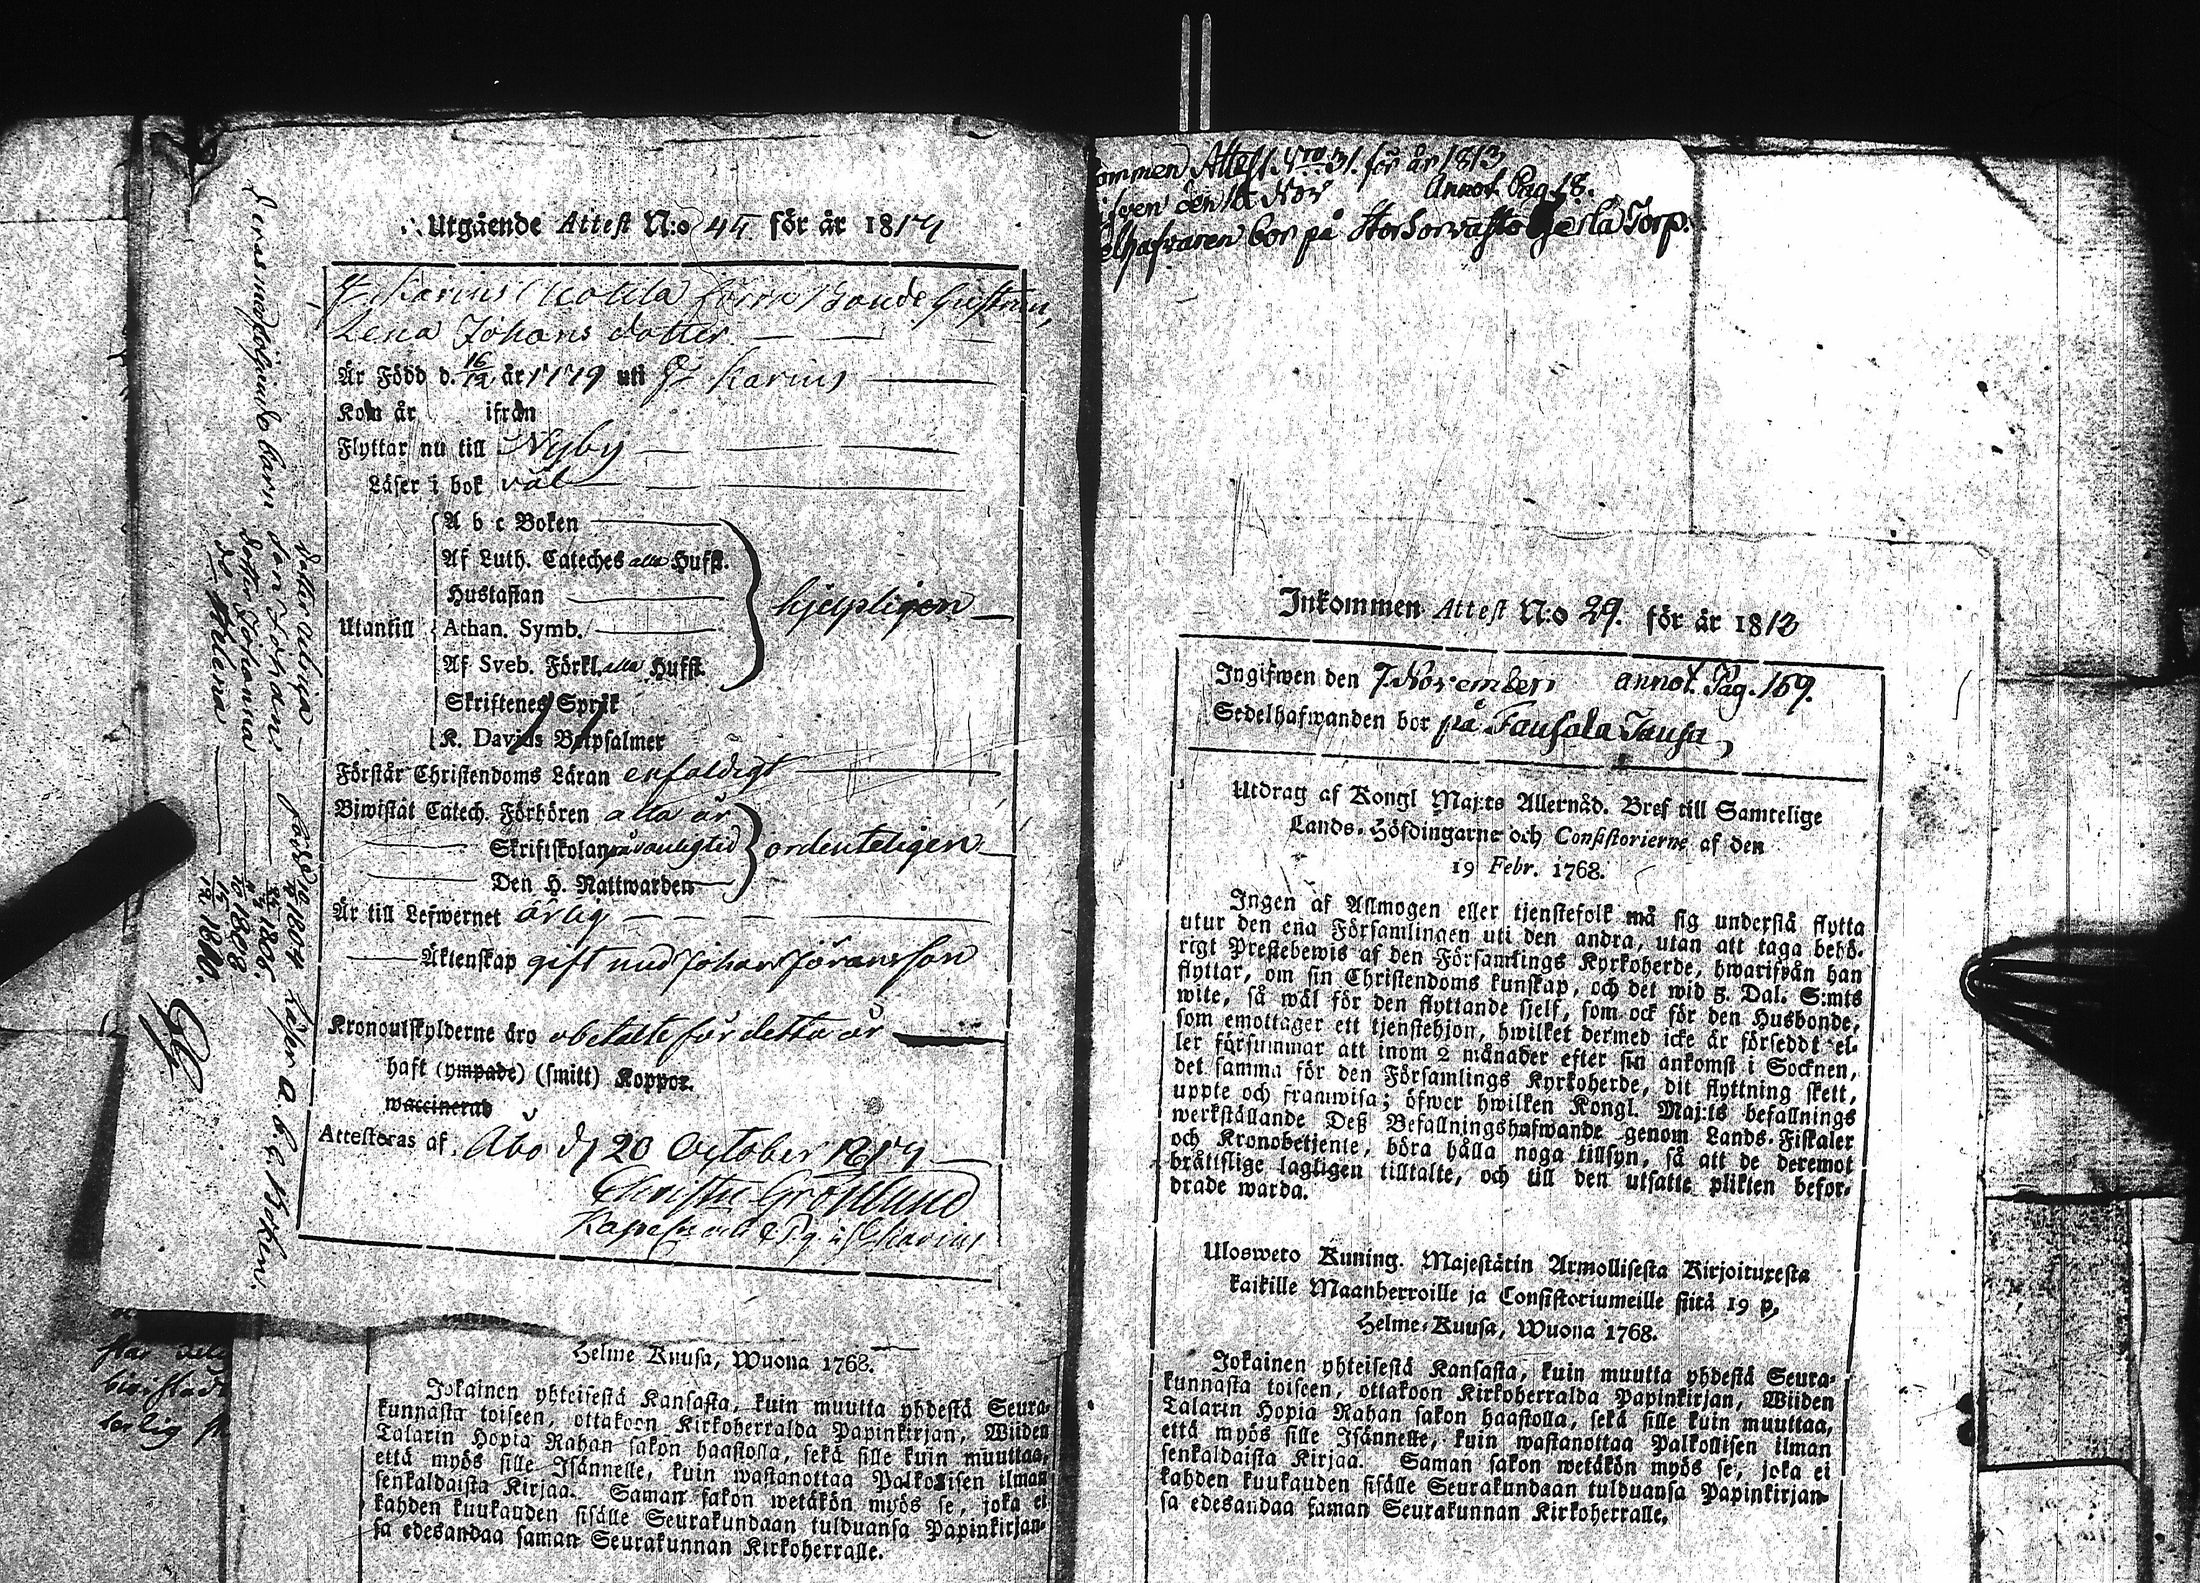 Utgående Attest N:o 44. för år 1814
St Karins Mattila förre Bonde hustrun,
Lena Johans dotter.
Är Född d. 16/12 år 1779 uti St Karins
Kom år ifrån
Flyttar nu till Nyby
Läser i bok väl
Utantill
A b c Boken
Af Luth. Cateches alla Hufst.
Hustaflan
Athan. Symb.
Af Sveb. Förkl. alla Hufst.
Skriftenes Språk
K. Davids Botpsalmer
hjelpligen
Förstår Christendoms Läran enfaldigt
Biwistat Catech. Förhören alla år
Skriftskolan på vanlig tid
Den H. Nattwarden
ordenteligen
Är till Lefwernet ärlig
Äktenskap gift med Johan Jöransson
Kronoutskylderne äro obetalte för detta år
haft (ympade) (smitt) Koppor.
waccinerad
Attesteras af. Åbo d 20 October 1814
Christer Grönlund
Deras medföljande barn
dotter
född 1804 läser a. b. c. Boken.
Son Johan 1806.
dotter Johanna 1808
do Helena 1810.
Helme Kuusa, Wuona 1768.
Jokainen yhteisestä Kansasta, kuin muutta yhdestä Seura-
kunnasta toiseen, ottakoon Kirkoherralda Papinkirjan, Wiiden
Talarin Hopia Rahan sakon haastolla, sekä sille kuin muuttaa,
että myös sille Isännelle, kuin wastanottaa Palkollisen ilman
senkaldaista Kirjaa. Saman sakon wetäkön myös se, joka ei
kahden kuukauden sisälle Seurakundaan tulduansa Papinkirjan-
sa edesandaa saman Seurakunnan Kirkoherralle.
ommen Attest N:ro 31. för år 1813
ifven den 18 Nov Annot. Pag. 18.
elhafvaren bor på Torp.
Inkommen Attest N:o 29. för år 1813
Ingifwen den 7 November annot. Pag. 169.
Sedelhafwanden bor på Taufola Taufa
Utdrag af Kongl Maj:ts Allernåd. Bref till Samtelige
Lands-Höfdingarne och Consistorierne af den
19 Febr. 1768.
Ingen af Allmogen eller tjenstefolk må sig understå flytta
utur den ena Församlingen uti den andra, utan att taga behö-
rigt Prestebewis af den Församlings Kyrkoherde, hwarifrån han
flyttar, om sin Christendoms kunskap, och det wid 5. Dal. S:mts
wite, så wäl för den flyttande sjelf, som ock för den Husbonde,
som emottager ett tjenstehjon, hwilket dermed icke är försedd el-
ler försummar att inom 2 månader efter sin ankomst i Socknen,
det samma för den Församlings Kyrkoherde, dit flyttning skett,
uppte och framwisa; öfwer hwilken Kongl. Maj:ts befallnings
werkställande Deß Befallningshafwande genom Lands-Fiskaler
och Kronobetjente, böra hålla noga tillsyn, så att de deremot
bråttslige lagligen tilltalte, och till den utsatte plikten befor-
drade warda.
Ulosweto Kuning. Majestätin Armollisesta Kirjoituxesta
kaikille Maanherroille ja Consistoriumeille siitä 19 p,
Helme-Kuusa, Wuona 1768.
Jokainen yhteisestä Kansasta, kuin muutta yhdestä Seura-
kunnasta toiseen, ottakoon Kirkoherralda Papinkirjan, Wiiden
Talarin Hopia Rahan sakon haastolla, sekä sille kuin muuttaa,
että myös sille Isännelle, kuin wastanottaa Palkollisen ilman
senkaldaista Kirjaa. Saman sakon wetäkön myös se, joka ei
kahden kuukauden sisälle Seurakundaan tulduansa Papinkirjan-
sa edesandaa saman Seurakunnan Kirkoherralle.